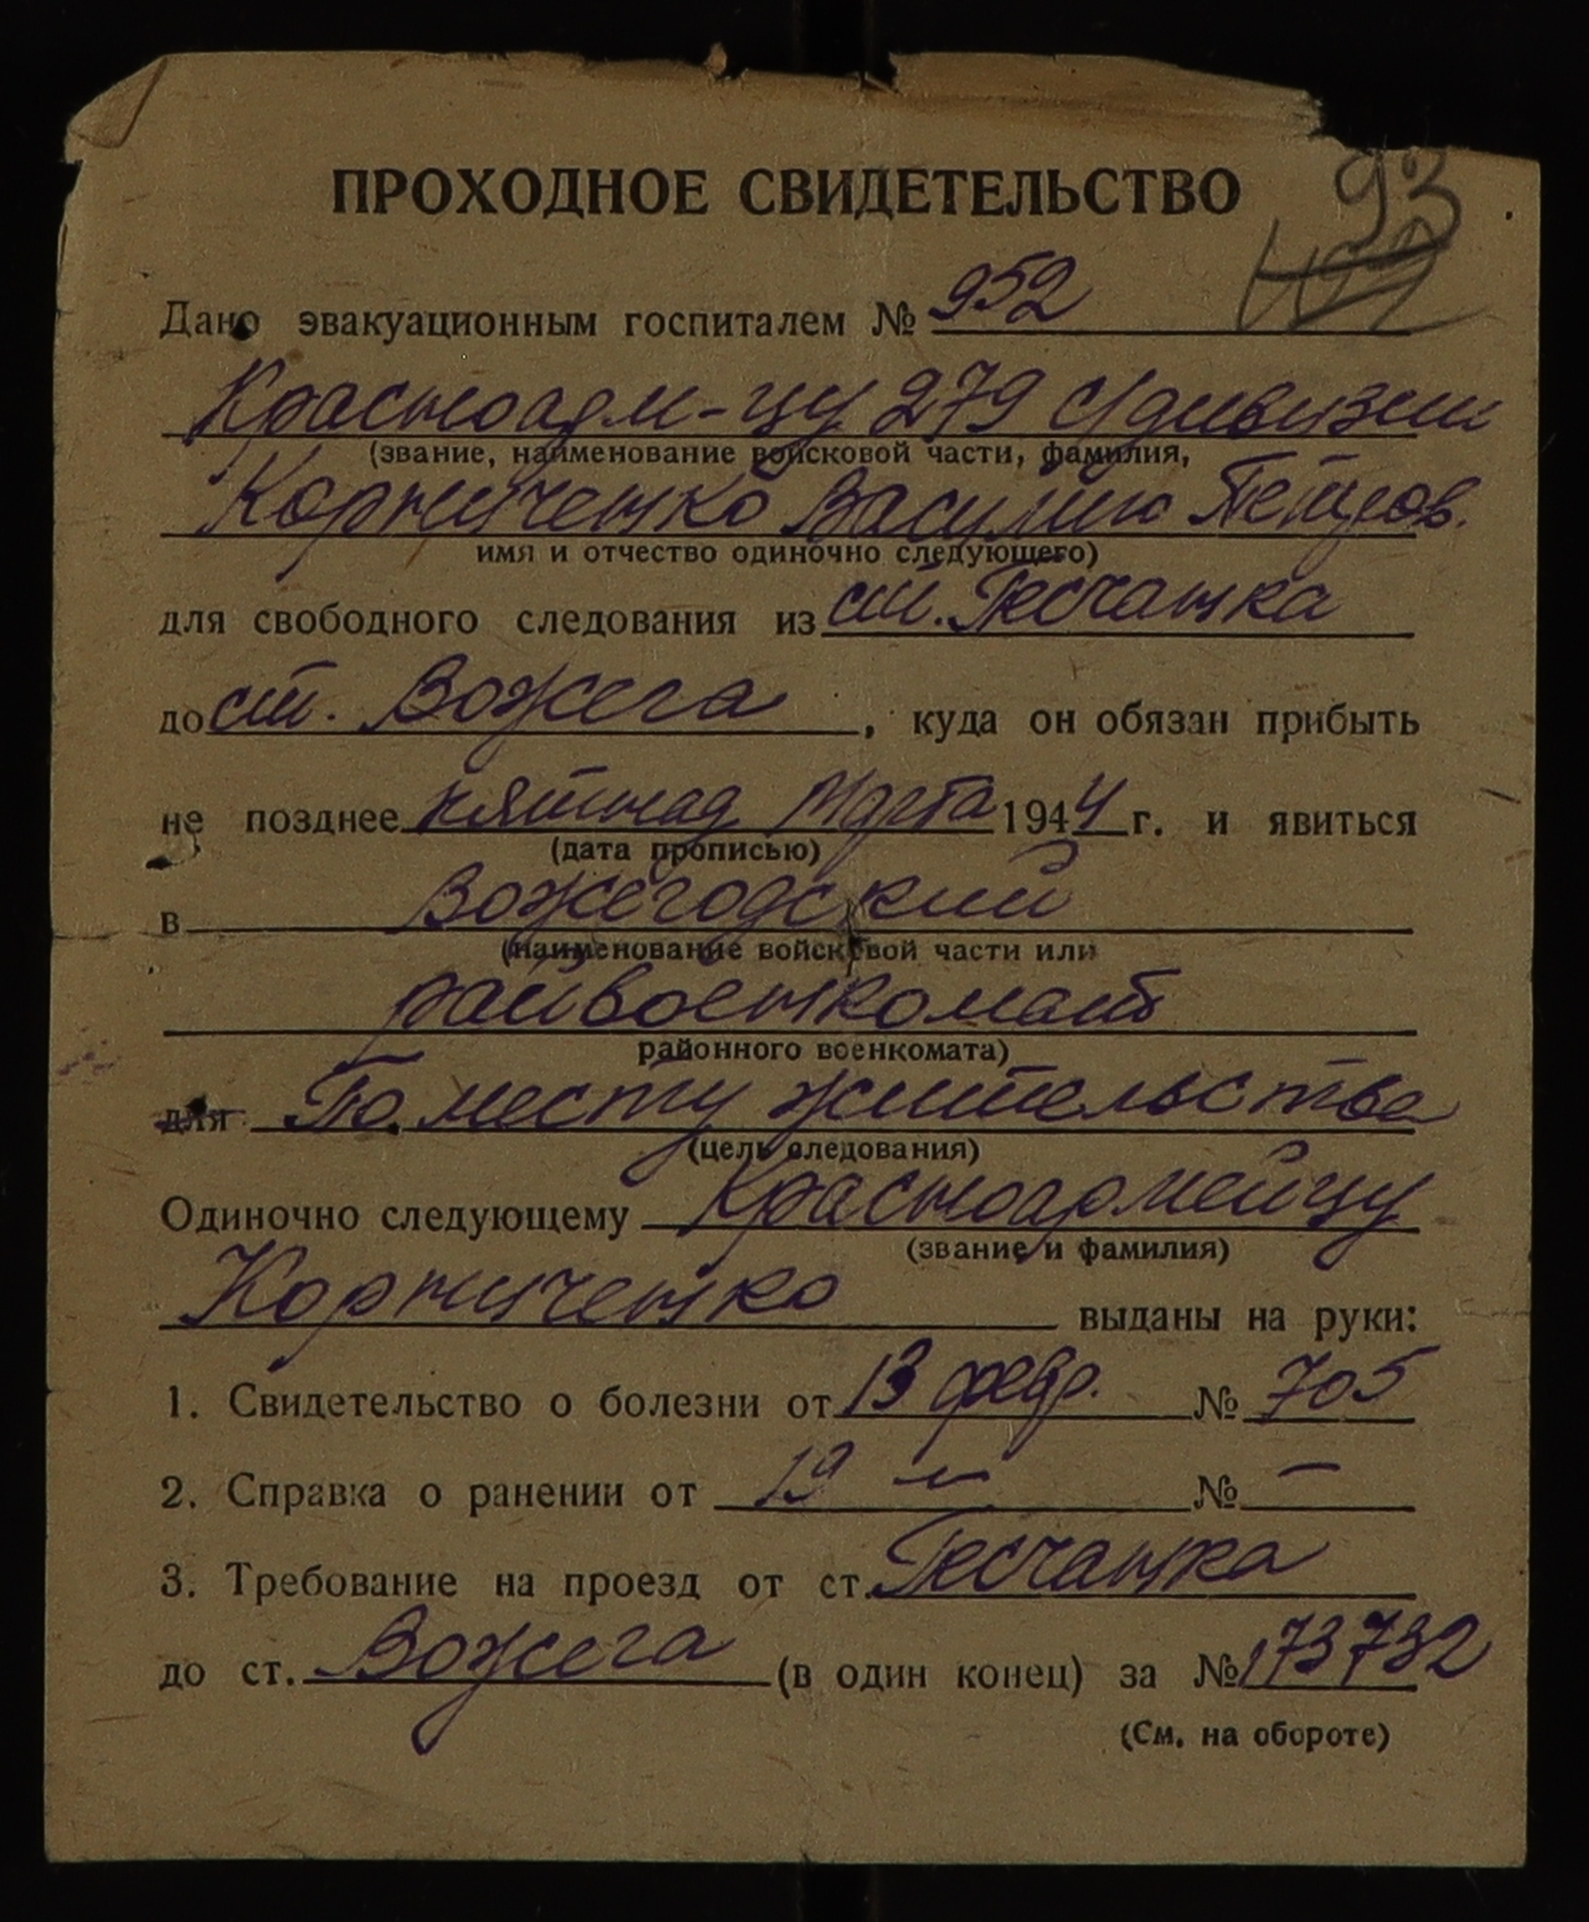 93
ПРОХОДНОЕ СВИДЕТЕЛЬСТВО
Дано эвакуационным госпиталем № 952
Красноарм-цу 279 с/дивизии
(звание, наименование войсковой части, фамилия,
Корниченко Василию Петров.
имя и отчество одиночно следующего)
для свободного следования из ст. Песчанка
до ст. Вожега, куда он обязан прибыть
не позднее пятнад марта 1944 г. и явиться
(дата прописью)
в Вожегодский
(наименование войсковой части или
райвоенкомат
районного военкомата)
для По месту жительства
(цель следования)
Одиночно следующему Красноармейцу
(звание и фамилия)
Корниченко выданы на руки:
1. Свидетельство о болезни от 13 февр. № 705
2. Справка о ранении от 19 -"- № —
3. Требование на проезд от ст. Песчанка
до ст. Вожега (в один конец) за № 173732
(См. на обороте)